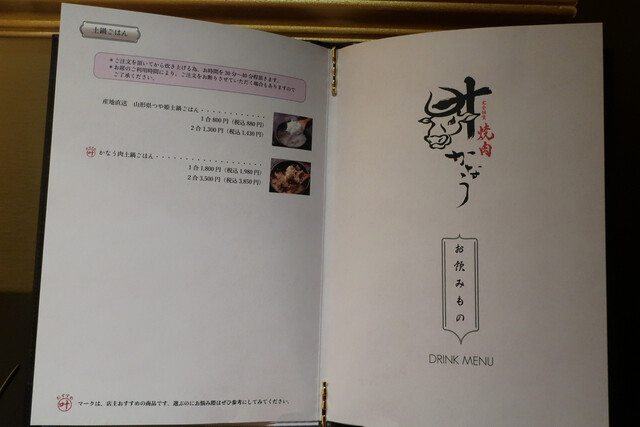 土鍋ごはん
＊ご注文を頂いてから炊き上げる為、お時間を30分〜40分頂戴します。
＊お席のご利用時間により、ご注文をお断りさせていただく場合もありますので
ご了承ください。
産地直送 山形県つや姫土鍋ごはん・・・・・・・・・・・
1合 800円（税込 880円）
2合 1,300円（税込 1,430円）
叶 かなう肉土鍋ごはん・・・・・・・・・・・・・・・・・・
1合 1,800円（税込 1,980円）
2合 3,500円（税込 3,850円）
叶 マークは、店主おすすめの商品です。選ぶのにお悩み際はぜひ参考にしてみてください。
叶
焼肉
かなう
お飲みもの
DRINK MENU